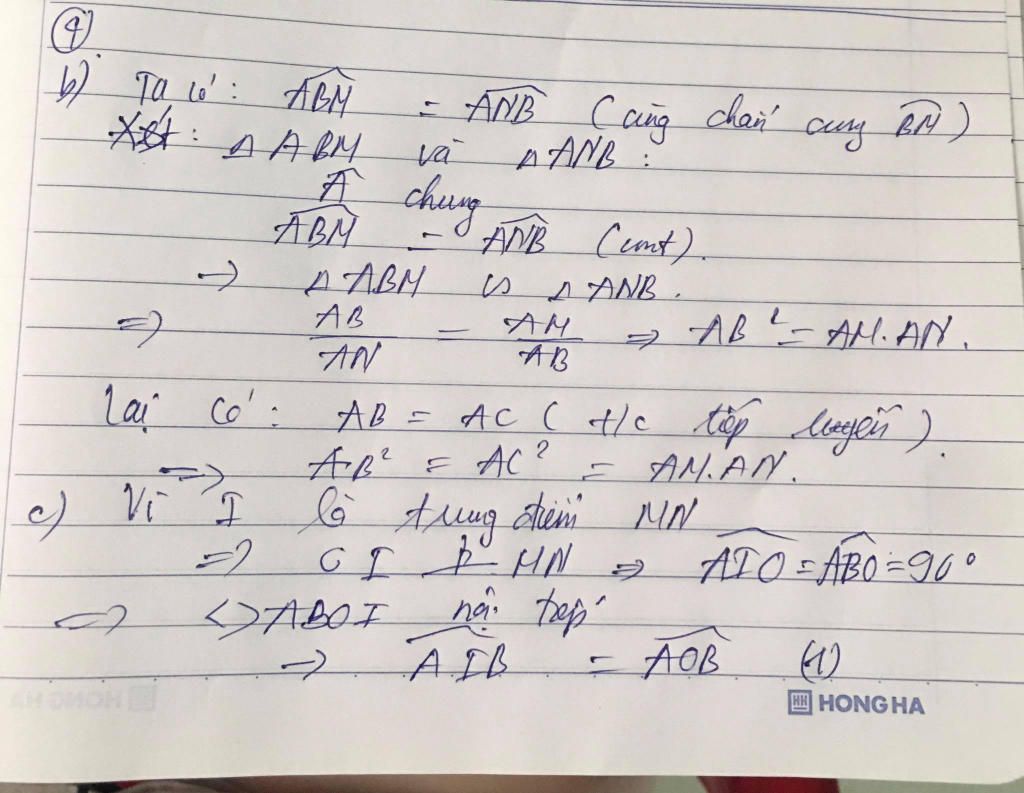 ④
b) Ta có: \widehat{ABM} = \widehat{ANB} (cùng chắn cung \overset{\frown}{BM})
Xét: Δ ABM và Δ ANB:
\widehat{A} chung
\widehat{ABM} = \widehat{ANB} (cmt).
→ Δ ABM ∽ Δ ANB.
⇒ \frac{AB}{AN} = \frac{AM}{AB} ⇒ AB² = AM.AN.
Lại có: AB = AC (t/c tiếp tuyến).
⇒ AB² = AC² = AM.AN.
c) Vì I là trung điểm MN
⇒ OI ⊥ MN ⇒ \widehat{AIO} = \widehat{ABO} = 90°
⇒ ◇ABOI nội tiếp
→ \widehat{AIB} = \widehat{AOB} (1)
HH HONG HA